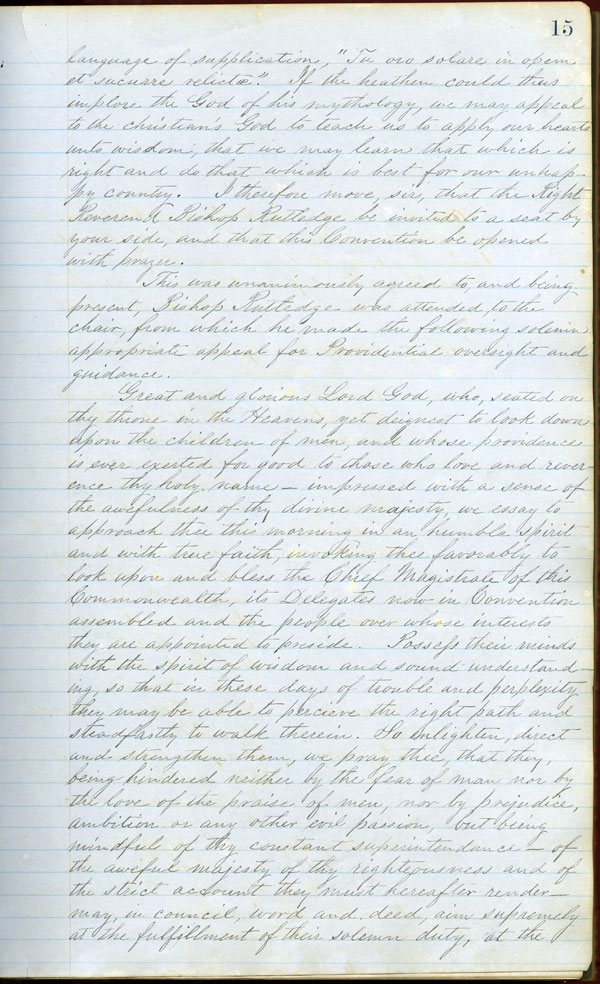 15
language of supplication, "Tu oro solare in opem
et sucurre relictæ". If the heathen could thus
implore the God of his mythology, we may appeal
to the christian's God to teach us to apply our hearts
unto wisdom, that we may learn that which is
right and do that which is best for our unhap-
py country. I therefore move, sir, that the Right
Reverend Bishop Rutledge be invited to a seat by
your side, and that this Convention be opened
with prayer.
This was unanimously agreed to and being
present, Bishop Rutledge was attended to the
chair, from which he made the following solemn
appropriate appeal for Providential oversight and
guidance.
Great and glorious Lord God, who, seated on
thy throne in the Heavens, yet deignest to look down
upon the children of men, and whose providence
is ever exerted for good to those who love and rever-
ence thy holy name — impressed with a sense of
the awefulness of thy divine majesty, we essay to
approach thee this morning in an humble spirit
and with true faith, invoking thee favorably to
look upon and bless the Chief Magistrate of this
Commonwealth, its Delegates now in Convention
assembled and the people over whose interests
they are appointed to preside. Possess their minds
with the spirit of wisdom and sound understand-
ing, so that in these days of trouble and perplexity
they may be able to percieve the right path and
steadfastly to walk therein. So enlighten, direct
and strengthen them, we pray thee, that they,
being hindered neither by the fear of man nor by
the love of the praise of men, nor by prejudice,
ambition or any other evil passion, but being
mindful of thy constant superintendance — of
the aweful majesty of thy righteousness and of
the strict account they must hereafter render —
may, in council, word and deed, aim supremely
at the fulfillment of their solemn duty, at the